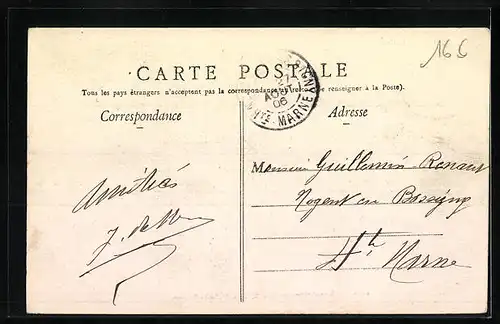 16 S
CARTE POSTALE
Tous les pays étrangers n'acceptent pas la correspondance au recto (se renseigner à la Poste).
Correspondance
Adresse
AOUT
06
HTE MARNE
Monsieur Guillemin-Renaut
Nogent en Bassigny
Hte Marne
Amitiés